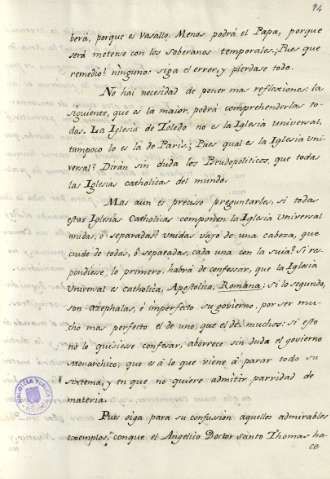 94
berá, porque es vasallo. Menos podrá el Papa, porque
será meterse con los soberanos temporales. ¿Pues que
remedio? ninguno: siga el error, y pierdase todo.
No hai necesidad de poner mas reflexiones: la
siguiente, que es la maior, podrá comprehenderlas to-
das. La Iglesia de Toledo no es la Iglesia universal,
tampoco lo es la de Paris; ¿Pues qual es la Iglesia Uni-
versal? Dirán sin duda los Pseudopoliticos, que todas
las Iglesias catholicas del mundo.
Mas aun es preciso preguntarles, si todas
estas Iglesias Catholicas componen la Iglesia Universal
unidas, ò separadas? unidas vajo de una cabeza, que
cuide de todas, ò separadas, cada una con la suia? Si res-
pondiese, lo primero, habrá de confessar, que la Iglesia
Universal es catholica, Apostolica, Romana; Si lo segundo,
son azephalas, è imperfecto su govierno, por ser mu-
cho mas perfecto el de uno, que el de muchos: si esto
no lo quisiese confesar, aborrece sin duda el govierno
monarchico; que es à lo que viene à parar todo su
sistema, y en que no quiere admitir parridad de
materia.
Pues oiga para su confusion aquellos admirables
exemplos, conque el Angelico Doctor santo Thomas ha-
ce